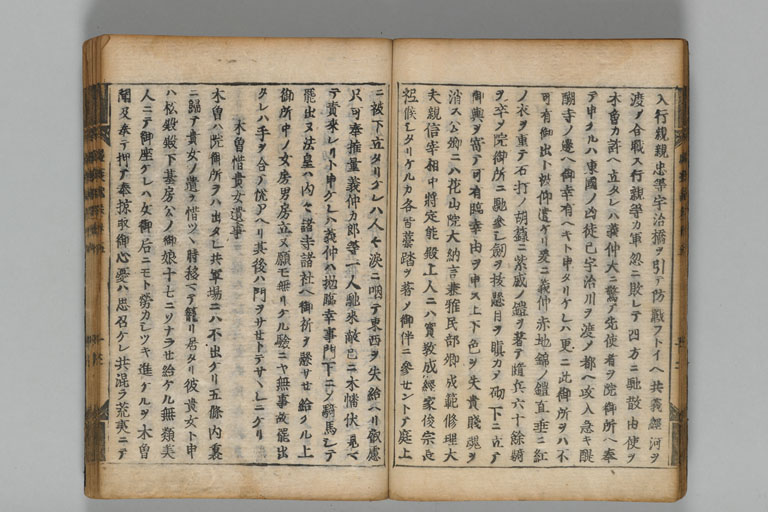 入行親親忠等宇治橋ヲ引テ防戦フトイヘ共義經河ヲ
渡メ合戦ス行親等カ軍忽ニ敗レテ四方ニ馳散由使ヲ
木曽カ許ヘ立タレハ義仲大ニ驚テ先使者ヲ院御所ヘ奉
テ申ケルハ東國ノ凶徒已宇治川ヲ渡メ都ヘ攻入急キ醍
醐寺ノ邊ヘ御幸有ヘキト申タリケレハ更ニ此御所ヲハ不
可有御出ト被仰遣ケリ爰ニ義仲赤地錦ノ鎧直垂ニ紅
ノ衣ヲ重テ石打ノ胡籙ニ紫威ノ鎧ヲ著テ隨兵六十餘騎
ヲ卒メ院御所ニ馳参シ劔ヲ按懸目ヲ瞋カメ砌下ニ立テ
御輿ヲ寄テ可有臨幸由ヲ申ス上下色ヲ失貴賤魂ヲ
消ス公卿ニハ花山院大納言兼雅民部卿成範修理大
夫親信宰相中將定能殿上人ニハ實教成經家俊宗長
祗候シタリケルカ各皆藁踏ヲ著メ御伴ニ参セントテ庭上
ニ被下立タリケレハ人々涙ニ咽テ東西ヲ失給ヘリ叡慮
只可奉推量義仲カ郎等一人馳来敵已ニ木幡伏見マ
テ責来レリト申ケレハ義仲ハ抛臨幸事門下ニメ騎馬シテ
罷出ヌ法皇ハ内々諸寺諸社ヘ御祈ヲ懸サセ給ケル上
御所中ノ女房男房立ヌ願モ無リケル驗ニヤ無事故罷出
タレハ手ヲ合テ悦アヘリ其後ハ門ヲサセトテサヽレニケリ
木曽惜貴女遺事
木曽ハ院御所ヲハ出タレ共軍場ニハ不出ケリ五條内裏
ニ歸テ貴女ノ遺ヲ惜ツヽ時移マテ籠リ居タリ彼貴女ト申
ハ松殿殿下基房公ノ御娘十七ニソナラセ給ケル無類美
人ニテ御座ケレハ女御后ニモト勞カシツキ進ケルヲ木曽
聞及奉テ押テ奉掠取御心憂ハ思召ケレ共混ラ荒夷ニテ